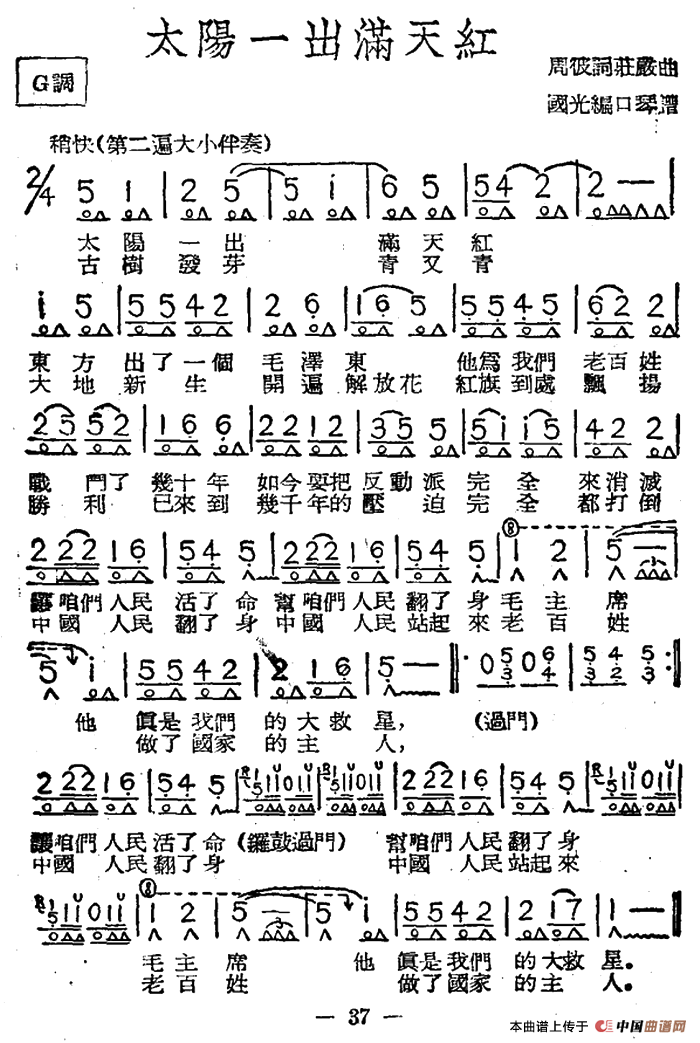 太陽一出滿天紅
G調
周彼詞莊嚴曲
國光編口琴譜
稍快(第二遍大小伴奏)
2/4 5 1 | 2 5 | 5 i | 6 5 | 54 2 | 2 — |
太陽一出 滿天紅
古樹發芽 青又青
i 5 | 55 42 | 2 6 | 16 5 | 55 45 | 62 2 |
東方出了一個毛澤東 他爲我們老百姓
大地新生 開遍解放花 紅旗到處飄揚
25 52 | 16 6 | 22 12 | 35 5 | 5i i5 | 42 2 |
戰鬥了幾十年 如今要把反動派完全來消滅
勝利 已來到幾千年的壓迫完全都打倒
2 22 16 | 54 5 | 2 22 16 | 54 5 | 1 2 | 5 — |
咱們人民活了命幫咱們人民翻了身毛主席
中國人民翻了身中國人民站起來老百姓
5 i | 55 42 | 2 16 | 5 — :
他眞是我們的大救星,(過門)
做了國家的主人,
2 22 16 | 54 5
讓咱們人民活了命(鑼鼓過門) 幫咱們人民翻了身
中國人民翻了身 中國人民站起來
i 2 | 5 — | 5 i | 55 42 | 2 17 | 1 — |
毛主席 他眞是我們的大救星。
老百姓 做了國家的主人。
— 37 —
本曲谱上传于 中国曲谱网